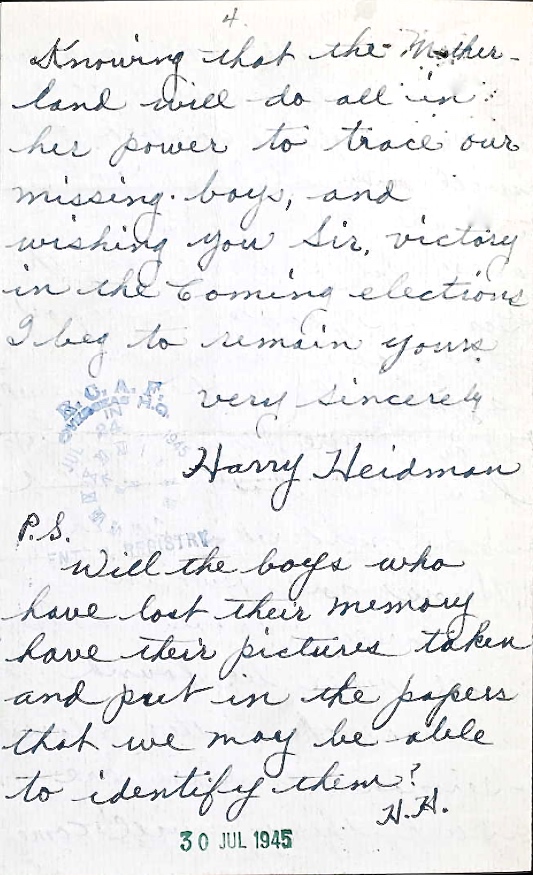 4.
Knowing that the Mother-
land will do all in
her power to trace our
missing boys, and
wishing you Sir, victory
in the Coming elections
I beg to remain yours
very sincerely
R.C.A.F.
OVERSEAS H.Q.
IN
JUL
1945
Harry Heidman
P.S.
REGISTRY
Will the boys who
have lost their memory
have their pictures taken
and put in the papers
that we may be able
to identify them?
H.H.
30 JUL 1945